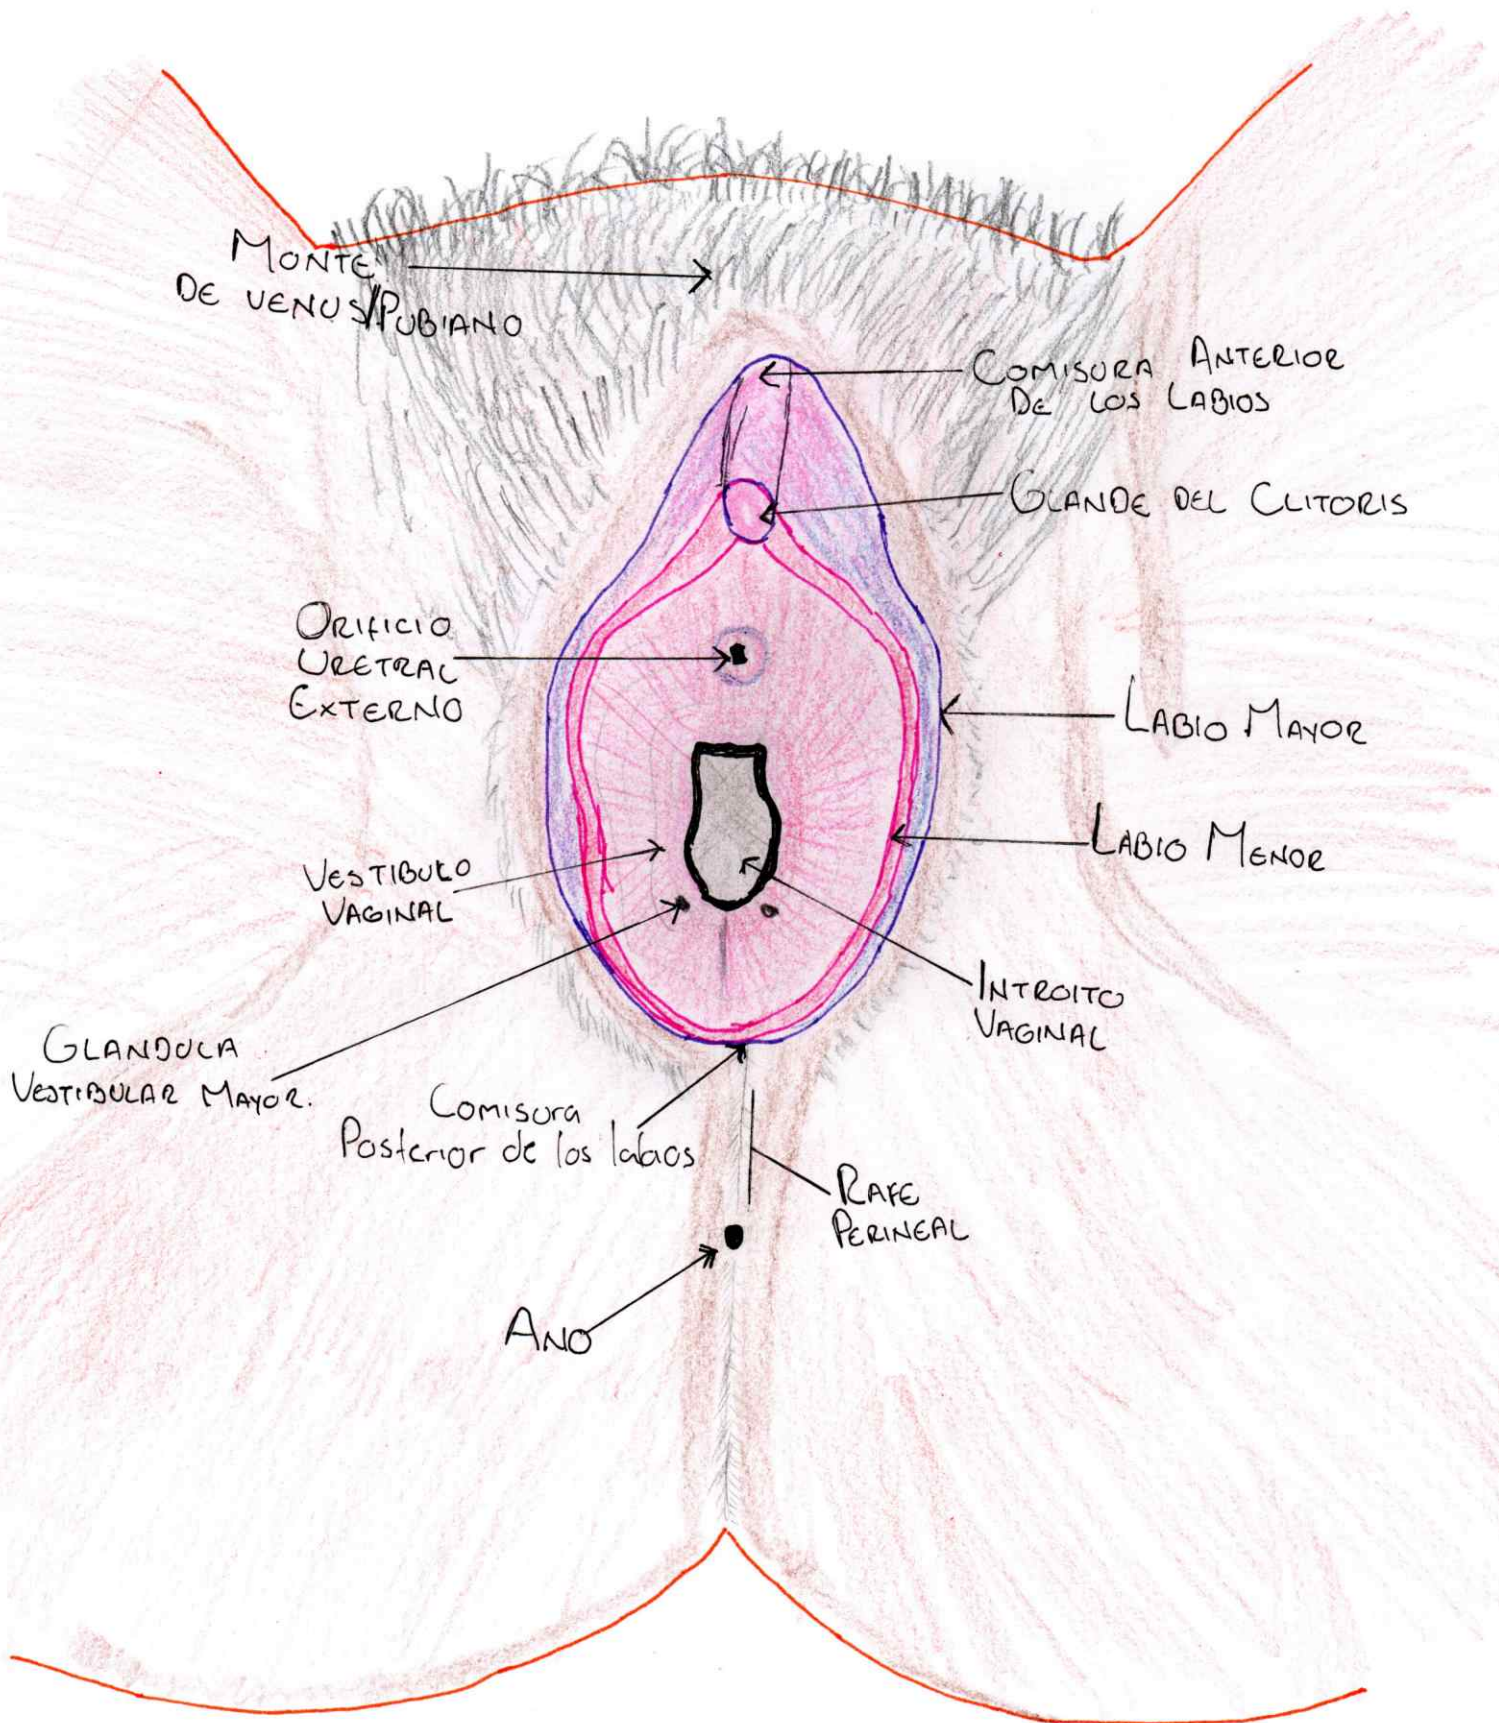 MONTE
DE VENUS/PUBIANO
COMISURA ANTERIOR
DE LOS LABIOS
GLANDE DEL CLITORIS
ORIFICIO
URETRAL
EXTERNO
LABIO MAYOR
LABIO MENOR
VESTIBULO
VAGINAL
INTROITO
VAGINAL
GLANDULA
VESTIBULAR MAYOR.
Comisura
Posterior de los labios
RAFE
PERINEAL
ANO